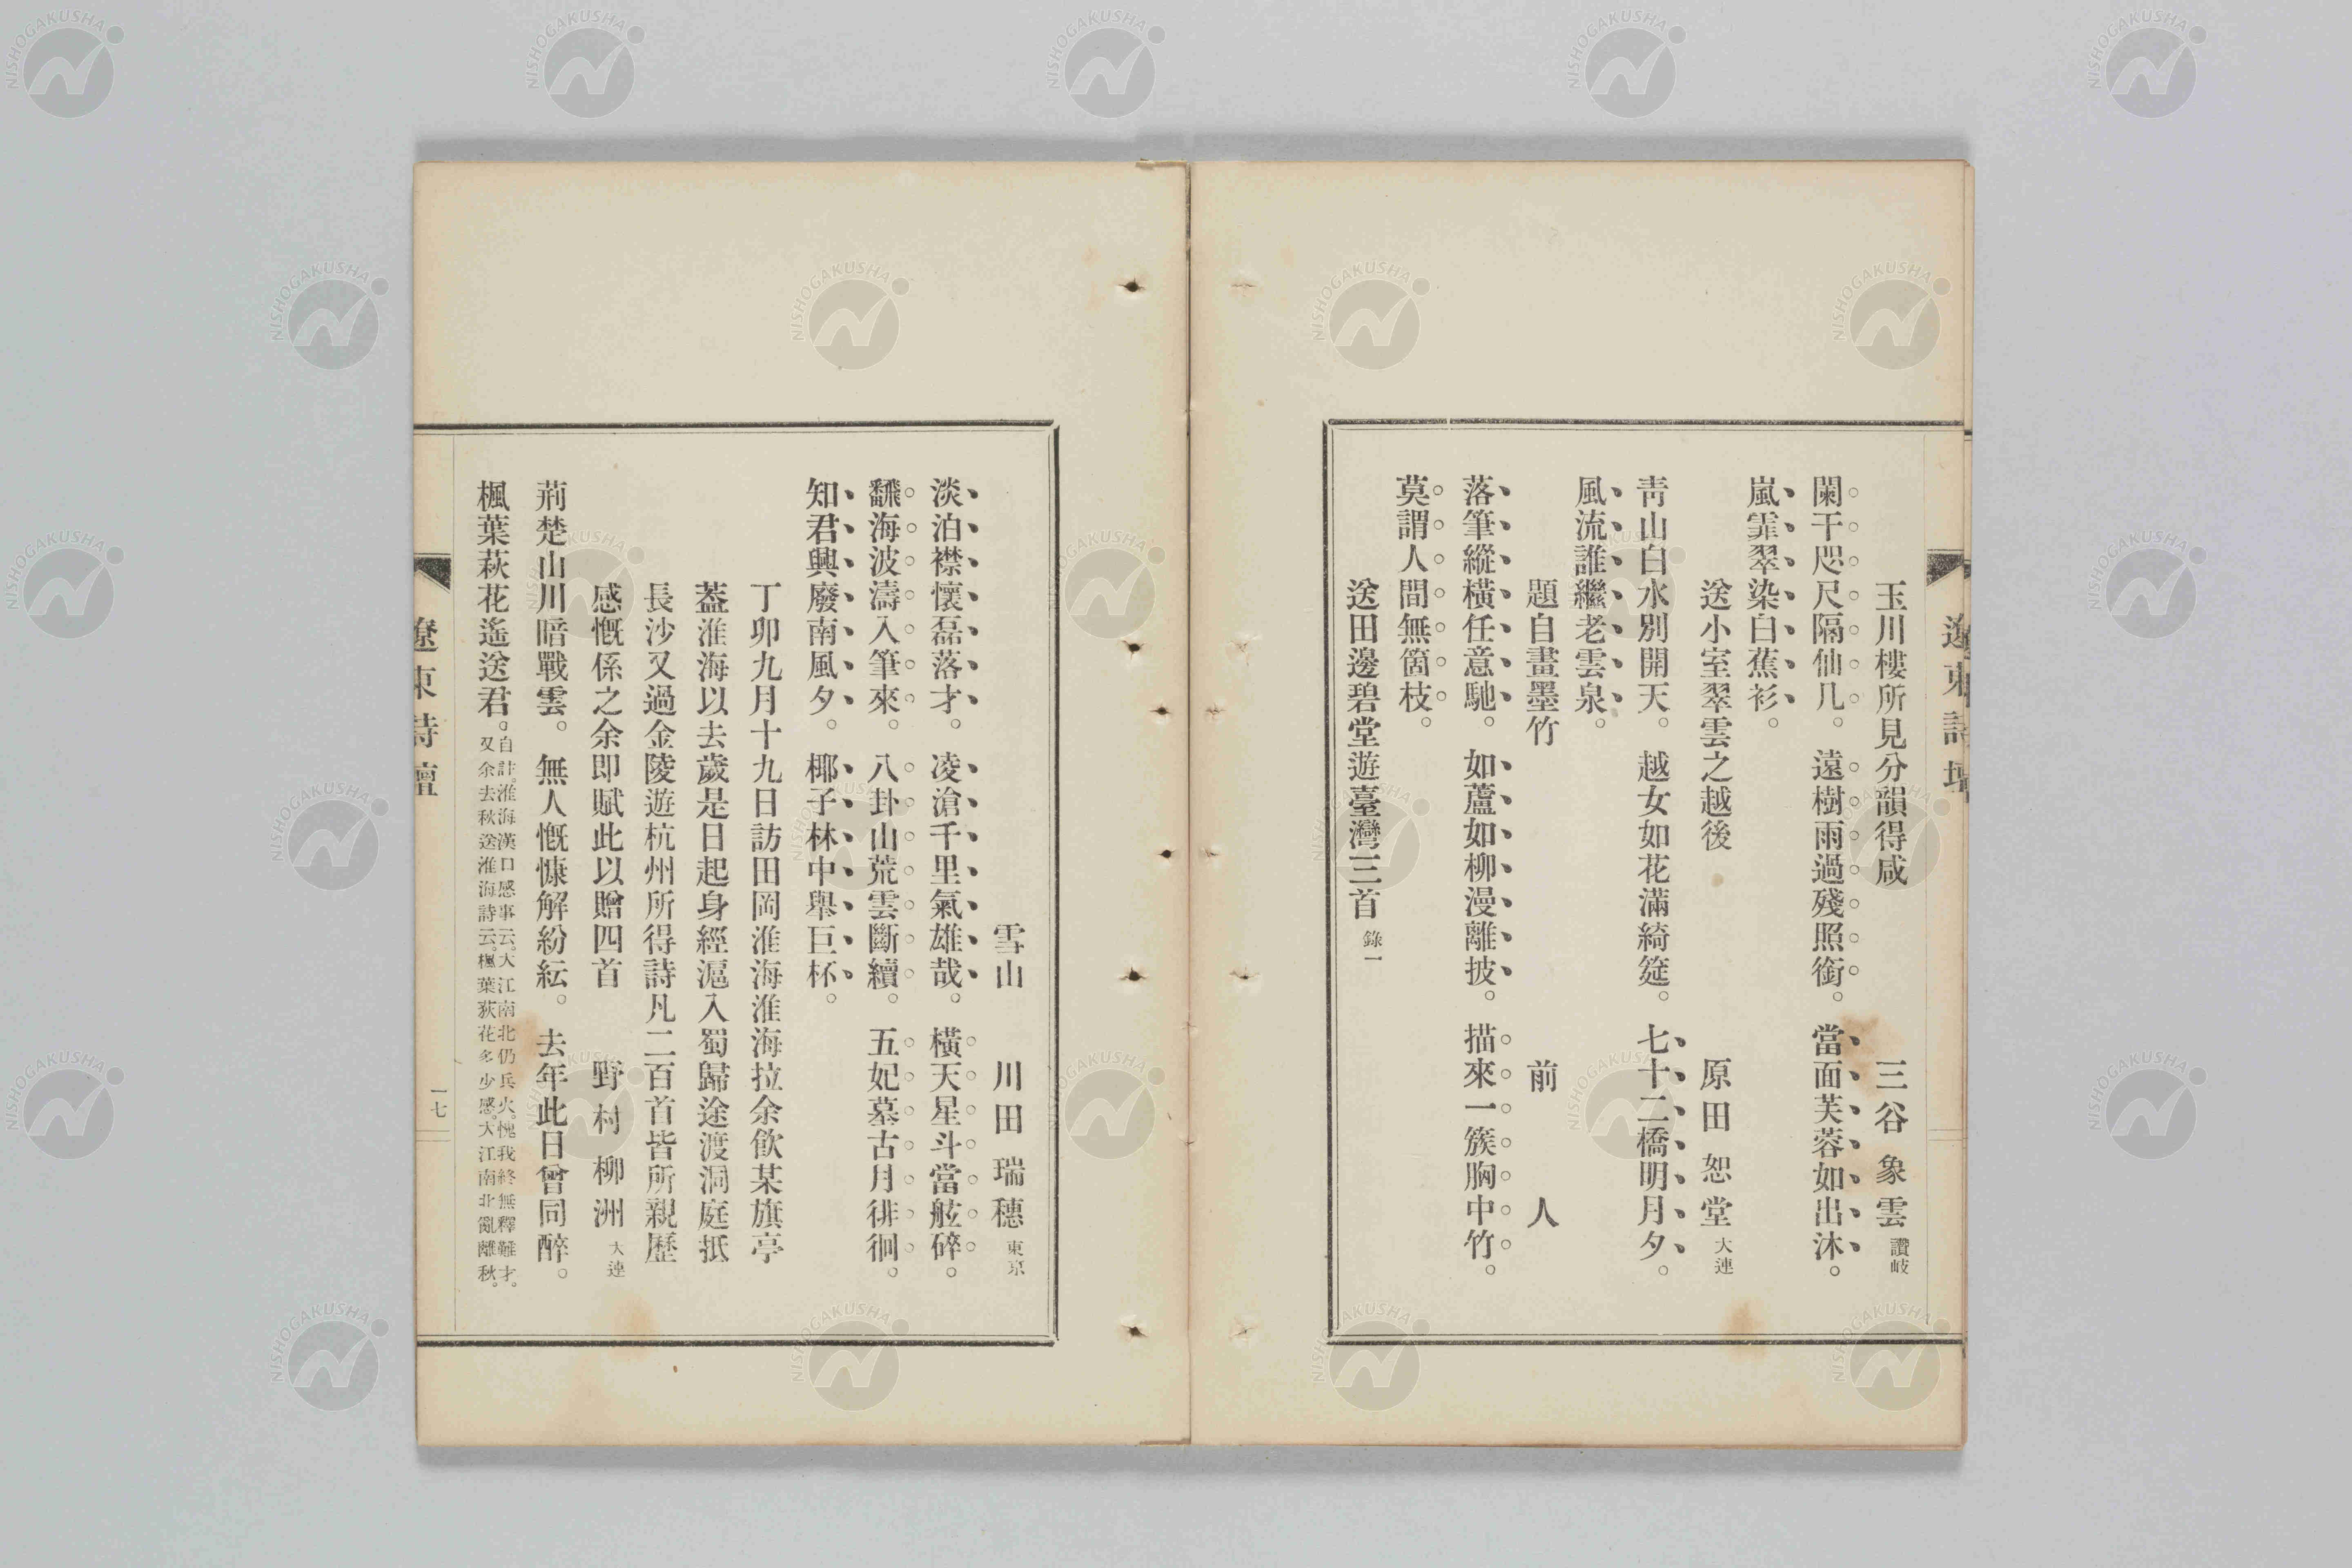 遼東詩壇
玉川樓所見分韻得咸　三谷象雲 讚岐
闌干咫尺隔仙凡。遠樹雨過殘照銜。當面芙蓉如出沐。
嵐霏翠染白蕉衫。
送小室翠雲之越後　原田恕堂 大連
靑山白水別開天。越女如花滿綺筵。七十二橋明月夕。
風流誰繼老雲泉。
題自畫墨竹　前人
落筆縱橫任意馳。如蘆如柳漫離披。描來一簇胸中竹。
莫謂人間無箇枝。
送田邊碧堂遊臺灣三首 錄一
雪山　川田瑞穗 東京
淡泊襟懷磊落才。凌滄千里氣雄哉。橫天星斗當舷碎。
飜海波濤入筆來。八卦山荒雲斷續。五妃墓古月徘徊。
知君興廢南風夕。椰子林中舉巨杯。
丁卯九月十九日訪田岡淮海淮海拉余飮某旗亭
葢淮海以去歲是日起身經滬入蜀歸途渡洞庭抵
長沙又過金陵遊杭州所得詩凡二百首皆所親歷
感慨係之余即賦此以贈四首　野村柳洲 大連
荊楚山川暗戰雲。無人慨慷解紛紜。去年此日曾同醉。
楓葉萩花遙送君。自註。淮海漢口感事云。大江南北仍兵火。愧我終無釋難才。
又余去秋送淮海詩云。楓葉荻花多少感。大江南北亂離秋。
遼東詩壇
一七
NISHOGAKUSHA